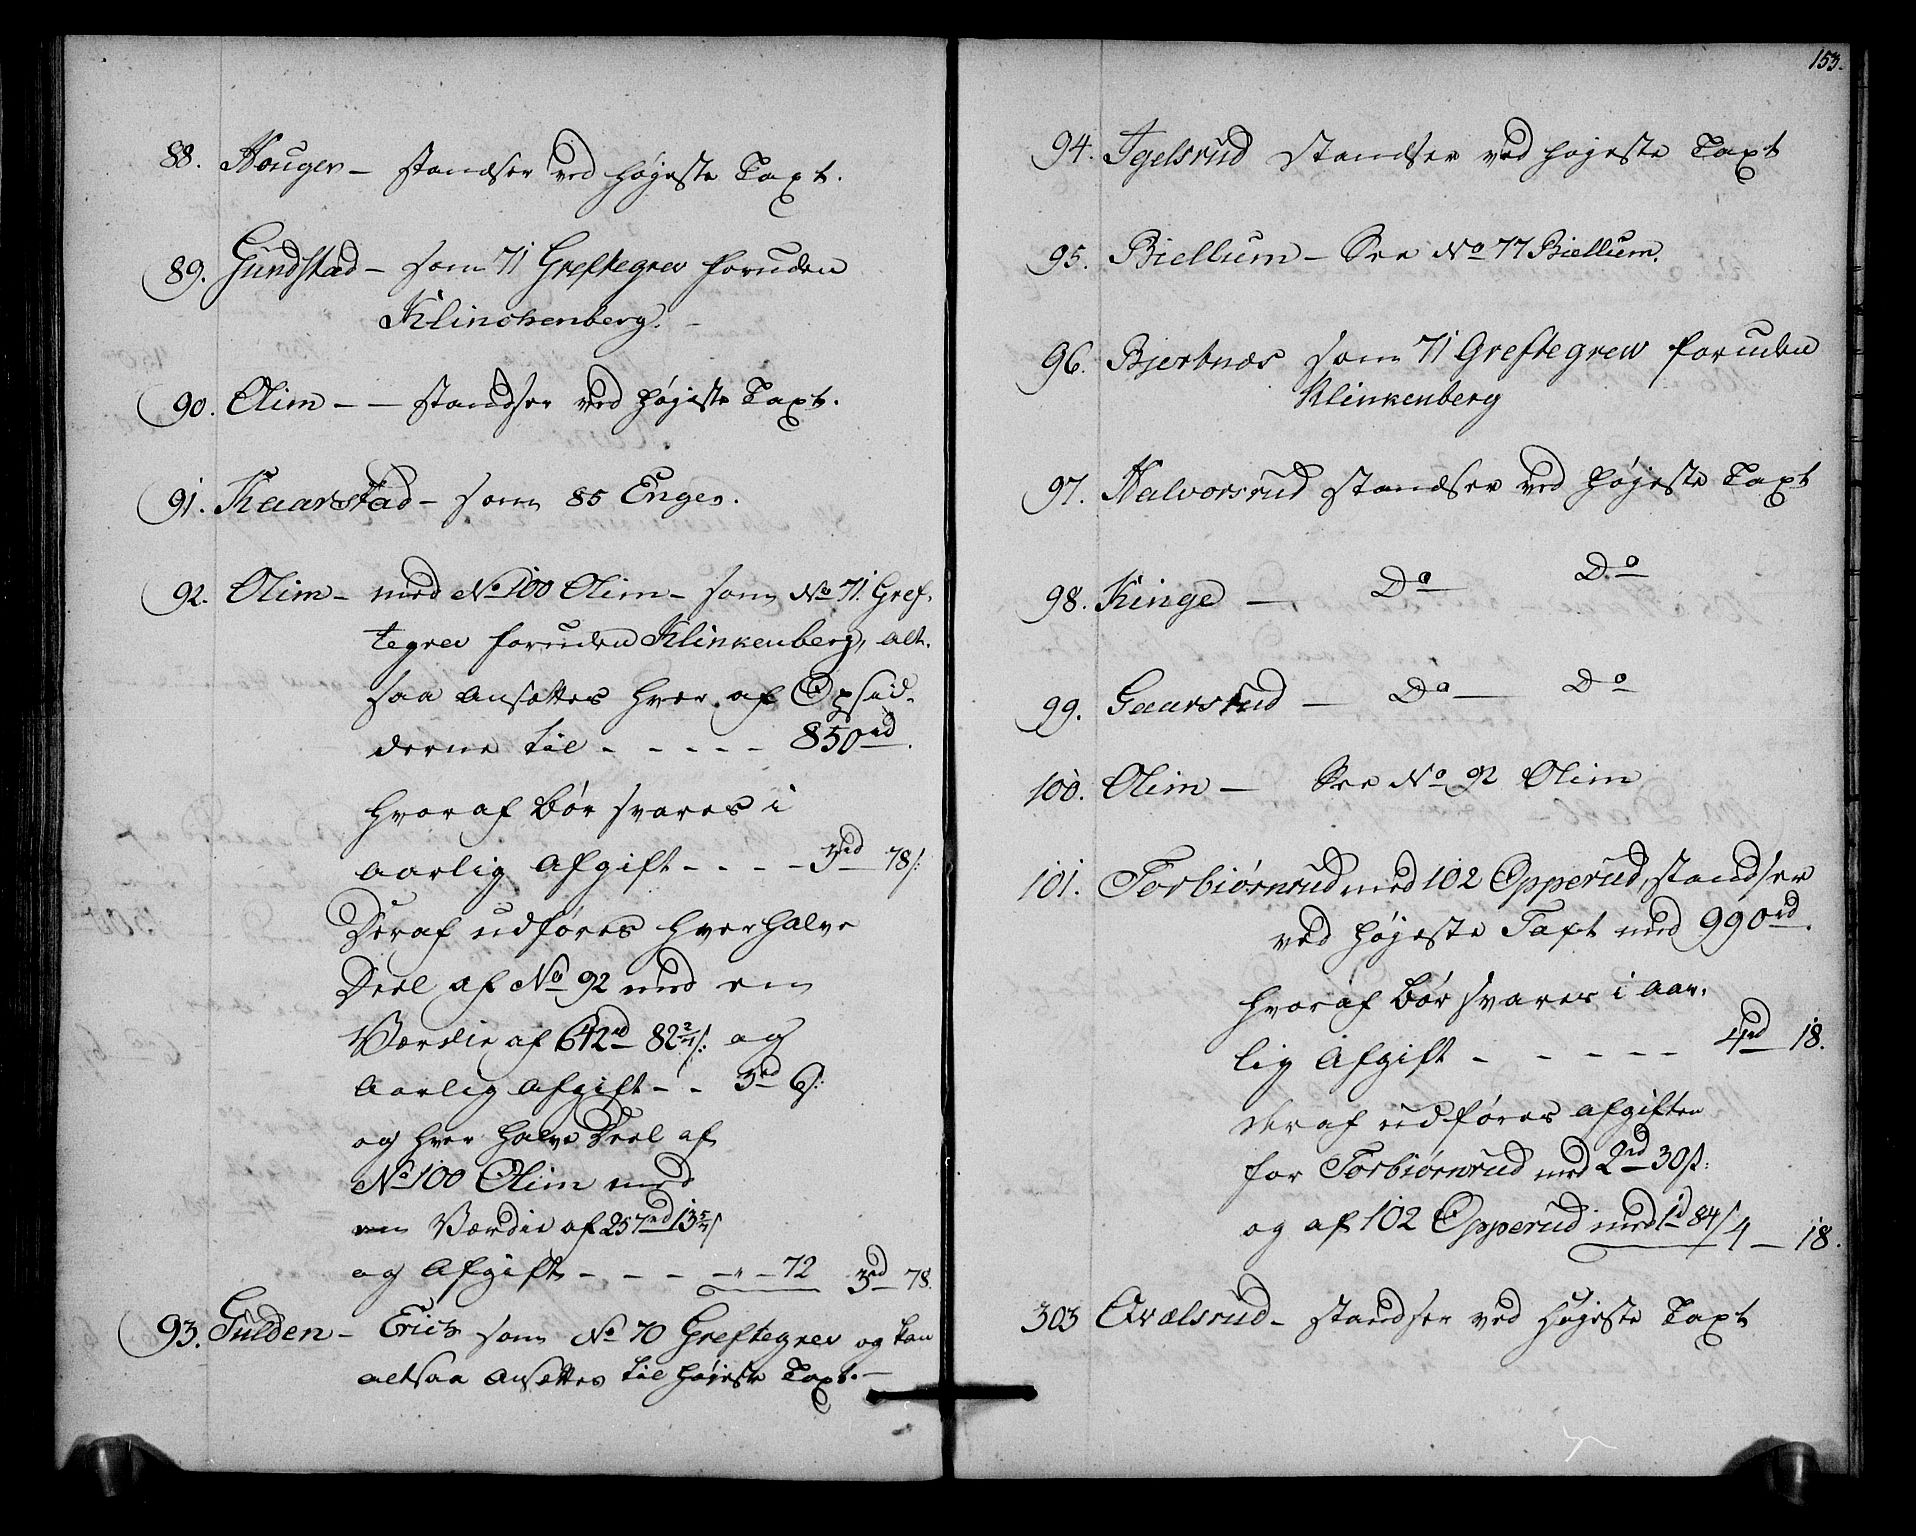 88. Houger – standser ved højeste Taxt.
89. Gundstad – som 71 Greftegrev foruden
Klinchenberg. –
90. Olim – – standser ved højeste Taxt.
91. Kaarstad – som 85 Enger.
92. Olim – med No 100 Olim – som No 71. Gref-
tegrev foruden Klinkenberg, alt-
saa ansættes hver af Opsid-
derne til – – – – – 850rd.
hvoraf bør svares i
aarlig Afgift – – – – 3rd 78/:
Deraf udføres hver halve
Deel af No 92 med en
Værdie af 642rd 82 2/7/: og
Aarlig Afgift – – 3rd 6/:
og hver halve Deel af
No 100 Olim med
en Værdie af 257rd 13 5/7/
og Afgift – – – – " – 72 3rd 78.
93. Gulden – Erich som No 70 Greftegrev og kan
altsaa ansættes til højeste Taxt. –
153.
94. Igelsrud standser ved højeste Taxt
95. Biellum – See No 77 Biellum.
96. Bjertnæs som 71 Greftegrev foruden
Klinkenberg
97. Halvorsrud standser ved højeste Taxt
98. Kinge – Do Do
99. Gaarsrud – Do – Do
100. Olim – See No 92 Olim
101. Torbiørnrud med 102 Opperud, standser
ved højeste Taxt med 990rd.
hvoraf bør svares i aar-
lig Afgift – – – – – 4rd 18.
deraf udføres afgiften
for Torbiørnrud med 2rd 30/:
og af 102 Opperud med 1d 84/ 4 – 18.
303 Qvælsrud – standser ved højeste Taxt